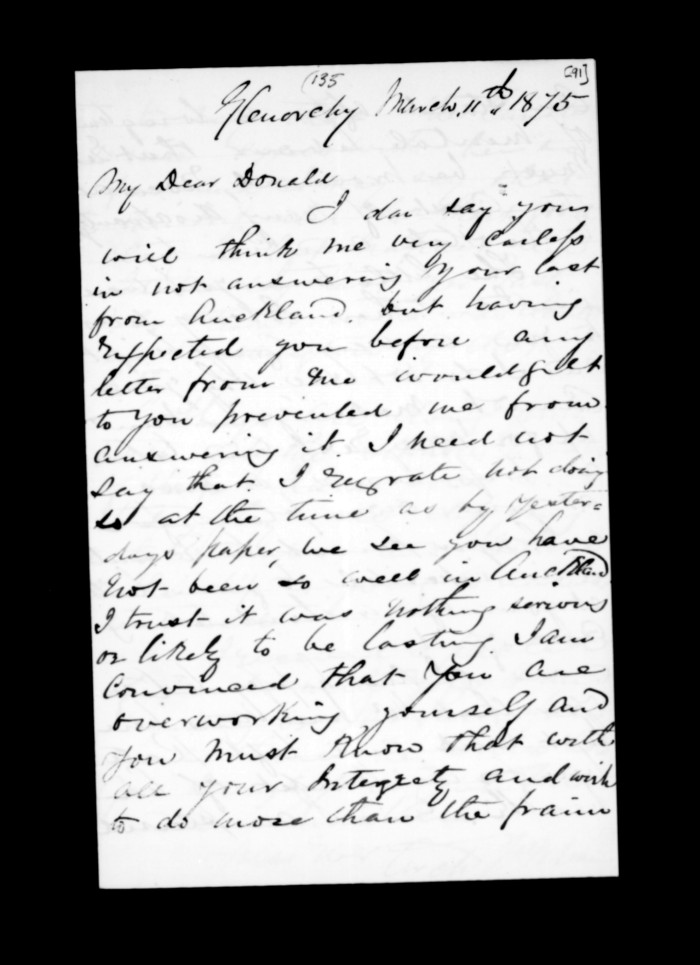 (135
[91]
Glenorchy March, 11th, 1875
My Dear Donald
I dar say your
will think me very careless
in not answering your last
from Auckland. but having
Expected you before any
letter from me would gett
to you prevented me from
answering it I need not
say that I regrate not doing
so at the time as by yester=
days paper, we see you have
not been so well in Auckland
I trust it was nothing serious
or likely to be lasting. I am
convinced that you are
overworking yourself and
you must know that with
all your Integrety and wish
to do more than the fraim